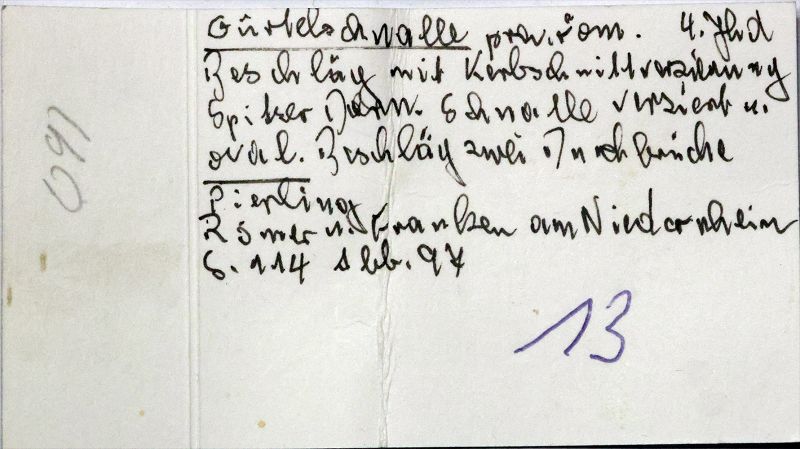 Gürtelschnalle prov. röm. 4. Jhd
Beschläg mit Kerbschnittverzierung
Spitzer Dorn. Schnalle verziert u.
oval. Beschläg zwei Durchbrüche
Pierling
Römer u. Franken am Niederrhein
S. 114 Abb. 97
13